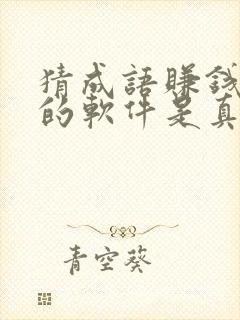 猜成語賺錢
的軟件是真
青空葵